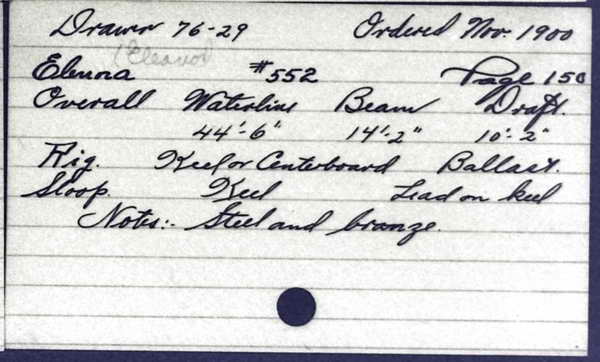 Drawer 76-29 Ordered Nov. 1900
(Eleanor)
Elenna #552 Page 150
Overall Waterline Beam Draft.
44'-6" 14'-2" 10'-2"
Rig. Keel or Centerboard Ballast.
Sloop. Keel Lead on keel
Notes:- Steel and bronze.